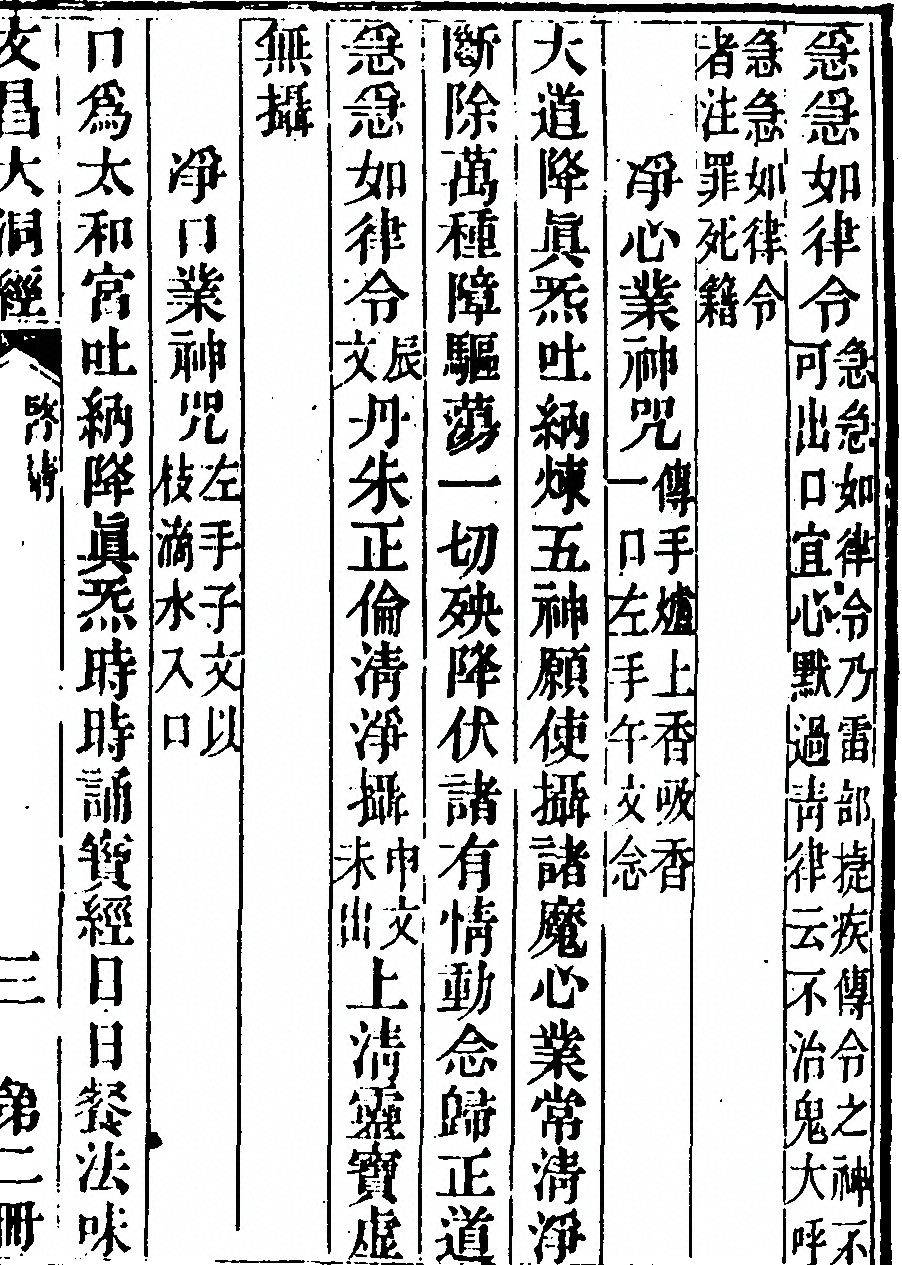 急急如律令急急如律令乃雷部捷疾傳令之神不可出口宜心默過青律云不治鬼大呼
急急如律令者注罪死籍
凈心業神咒傳手爐上香吸香一口左手午文念
大道降眞炁吐納煉五神願使攝諸魔心業常清淨
斷除萬種障驅蕩一切殃降伏諸有情動念歸正道
急急如律令辰文丹朱正倫清淨攝申文未出上清靈寶虛
無攝
凈口業神咒左手子文以枝滴水入口
口爲太和宮吐納降眞炁時時誦寶經日日餐法味
文昌大洞經 啓請 三 第二冊